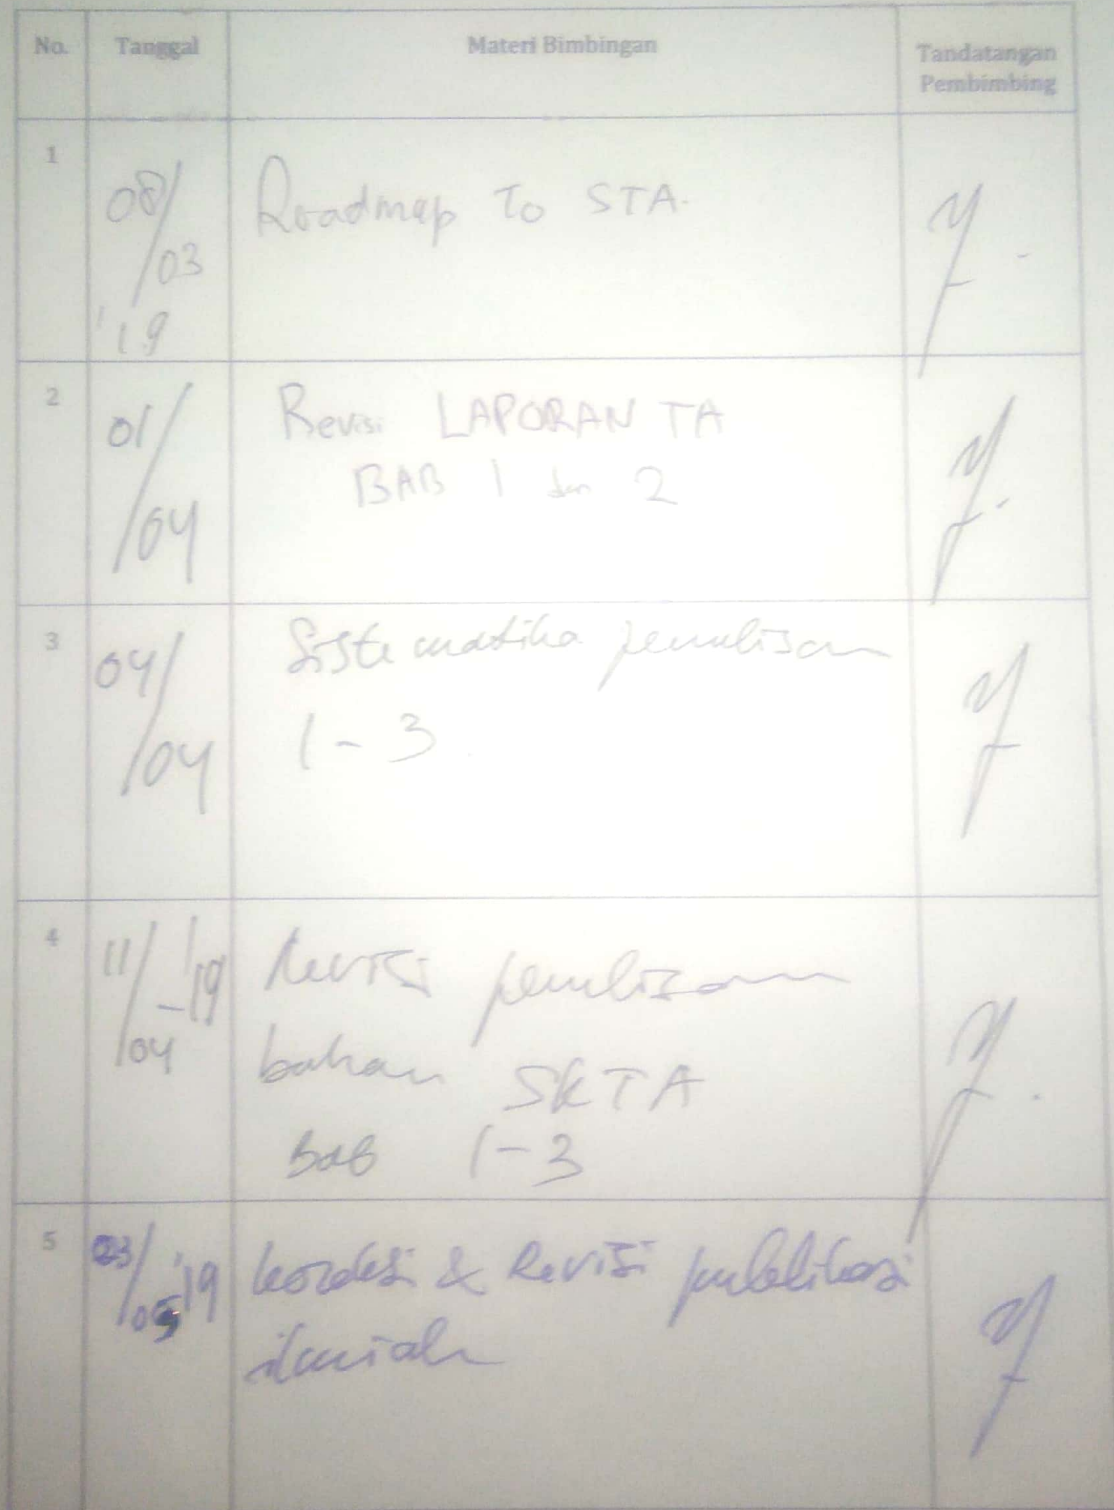 No. Tanggal Materi Bimbingan Tandatangan Pembimbing
1 08/03 '19 Roadmap To STA.
2 01/04 Revisi LAPORAN TA
BAB 1 dan 2
3 04/04 Sistematika penulisan
1 - 3
4 11/04 - '19 Revisi penulisan
bahan SKTA
BAB 1-3
5 03/05 '19 & Revisi publikasi
ilmiah